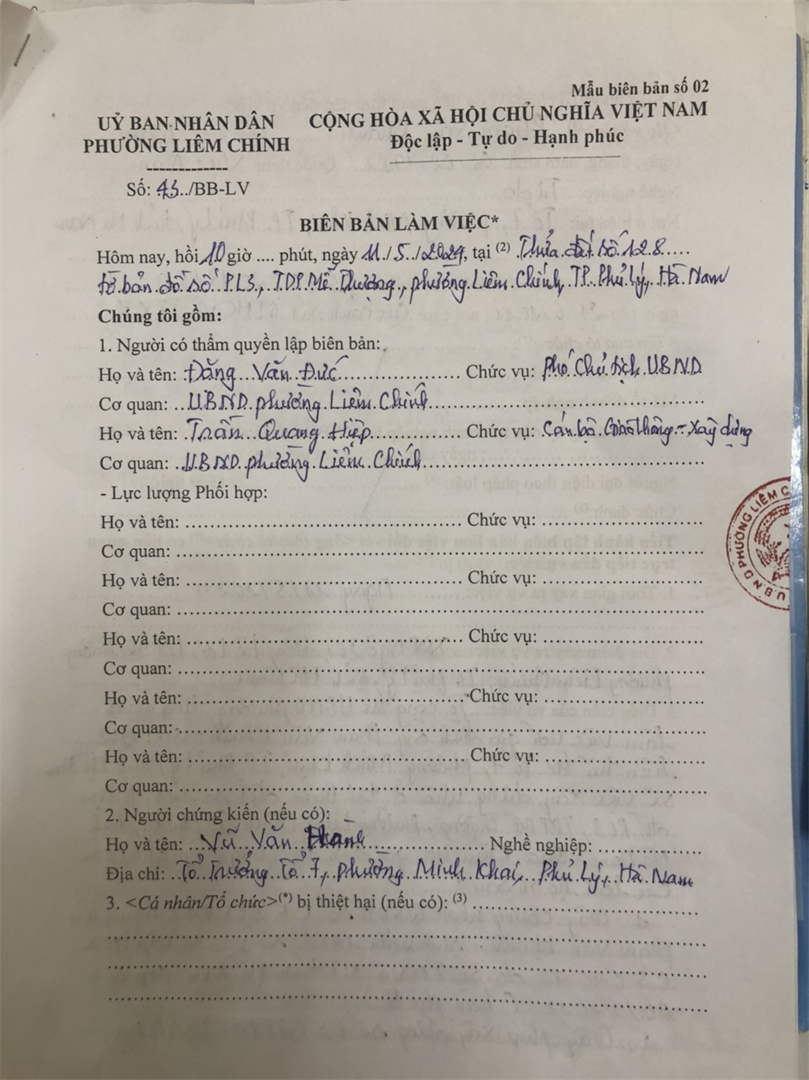 Mẫu biên bản số 02
UỶ BAN NHÂN DÂN
PHƯỜNG LIÊM CHÍNH
CỘNG HÒA XÃ HỘI CHỦ NGHĨA VIỆT NAM
Độc lập - Tự do - Hạnh phúc
Số: 43../BB-LV
BIÊN BẢN LÀM VIỆC*
Hôm nay, hồi 10 giờ .... phút, ngày 11./5./2024, tại (2) Thửa đất số 128....
tờ bản đồ số PL3, TDP Mễ Thượng, phường Liêm Chính, TP. Phủ Lý, Hà Nam
Chúng tôi gồm:
1. Người có thẩm quyền lập biên bản:
Họ và tên: Đặng Văn Đức Chức vụ: Phó Chủ tịch UBND
Cơ quan: UBND phường Liêm Chính
Họ và tên: Trần Quang Hiệp Chức vụ: Cán bộ Giao thông - Xây dựng
Cơ quan: UBND phường Liêm Chính
- Lực lượng Phối hợp:
Họ và tên: ........ Chức vụ: ........
Cơ quan: ........
Họ và tên: ........ Chức vụ: ........
Cơ quan: ........
Họ và tên: ........ Chức vụ: ........
Cơ quan: ........
Họ và tên: ........ Chức vụ: ........
Cơ quan: ........
Họ và tên: ........ Chức vụ: ........
Cơ quan: ........
2. Người chứng kiến (nếu có):
Họ và tên: Vũ Văn Thanh Nghề nghiệp: ........
Địa chỉ: Tổ Trưởng Tổ 7, phường Minh Khai, Phủ Lý, Hà Nam
3. <Cá nhân/Tổ chức>(*) bị thiệt hại (nếu có): (3) ........
U.B.N.D PHƯỜNG LIÊM C